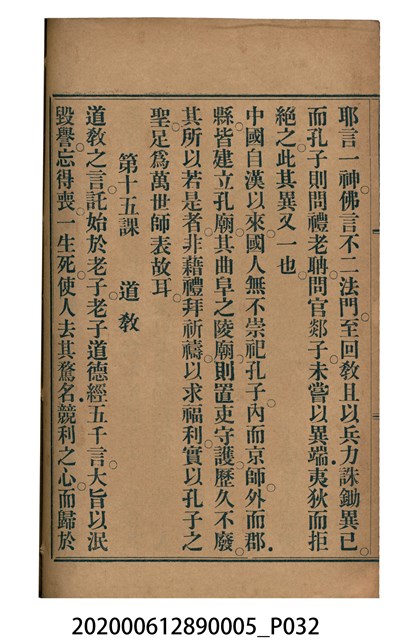 耶言一神。佛言不二法門。至回教且以兵力誅鋤異已。
而孔子則問禮老聃。問官郯子。未嘗以異端夷狄而拒
絶之。此其異又一也。
中國自漢以來。國人無不崇祀孔子。內而京師。外而郡
縣。皆建立孔廟。其曲阜之陵廟。則置吏守護。歷久不廢。
其所以若是者。非藉禮拜祈禱以求福利。實以孔子之
聖。足爲萬世師表故耳。
第十五課　道教
道教之言。託始於老子。老子道德經五千言。大旨以泯
毀譽。忘得喪。一生死。使人去其騖名競利之心。而歸於
202000612890005_P032